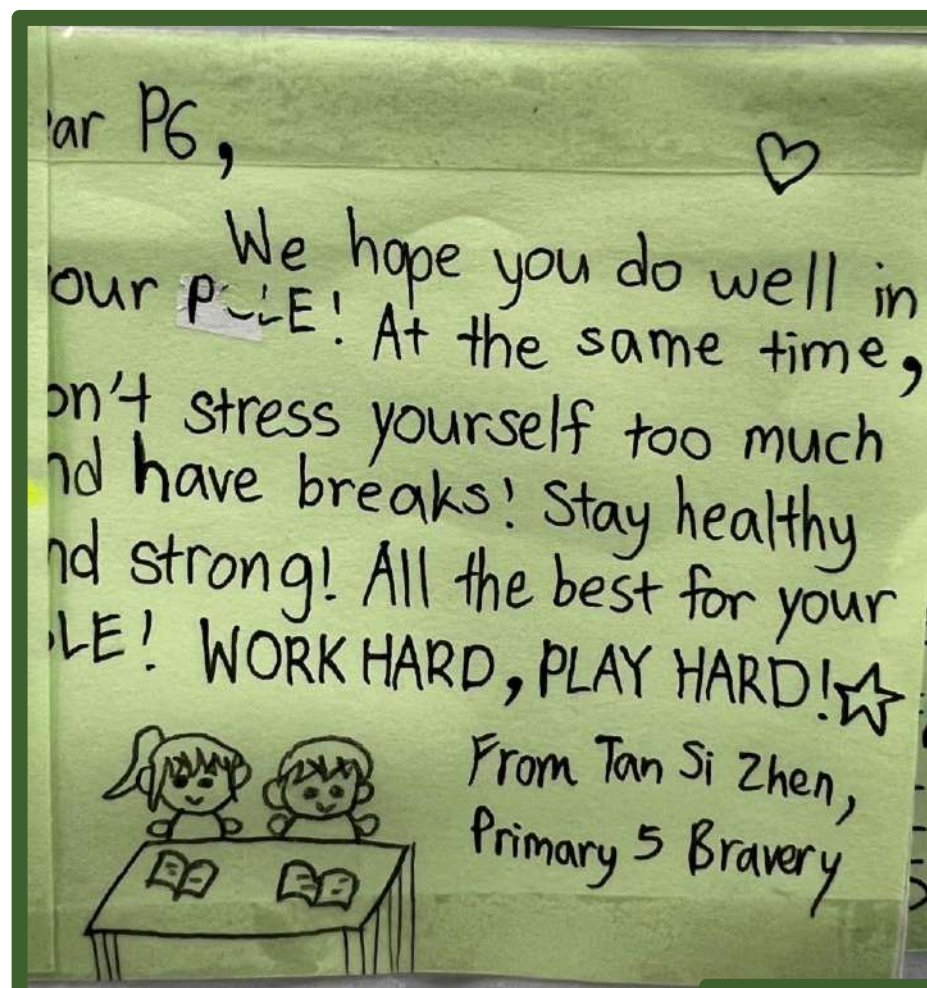 ar P6,
We hope you do well in
our P E! At the same time,
on't stress yourself too much
nd have breaks! Stay healthy
nd strong! All the best for your
LE! WORK HARD, PLAY HARD!
From Tan Si Zhen,
Primary 5 Bravery